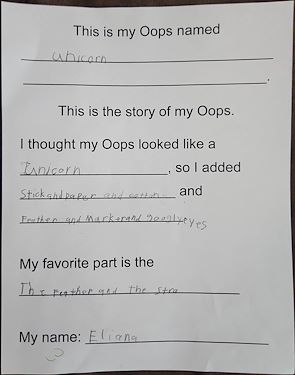 This is my Oops named
unicorn
.
This is the story of my Oops.
I thought my Oops looked like a
Iunicorn, so I added
Stick and paper and cotton and
Feather and Mark+rand googlyeyes
My favorite part is the
The Feather and the Stra
My name: Eliana